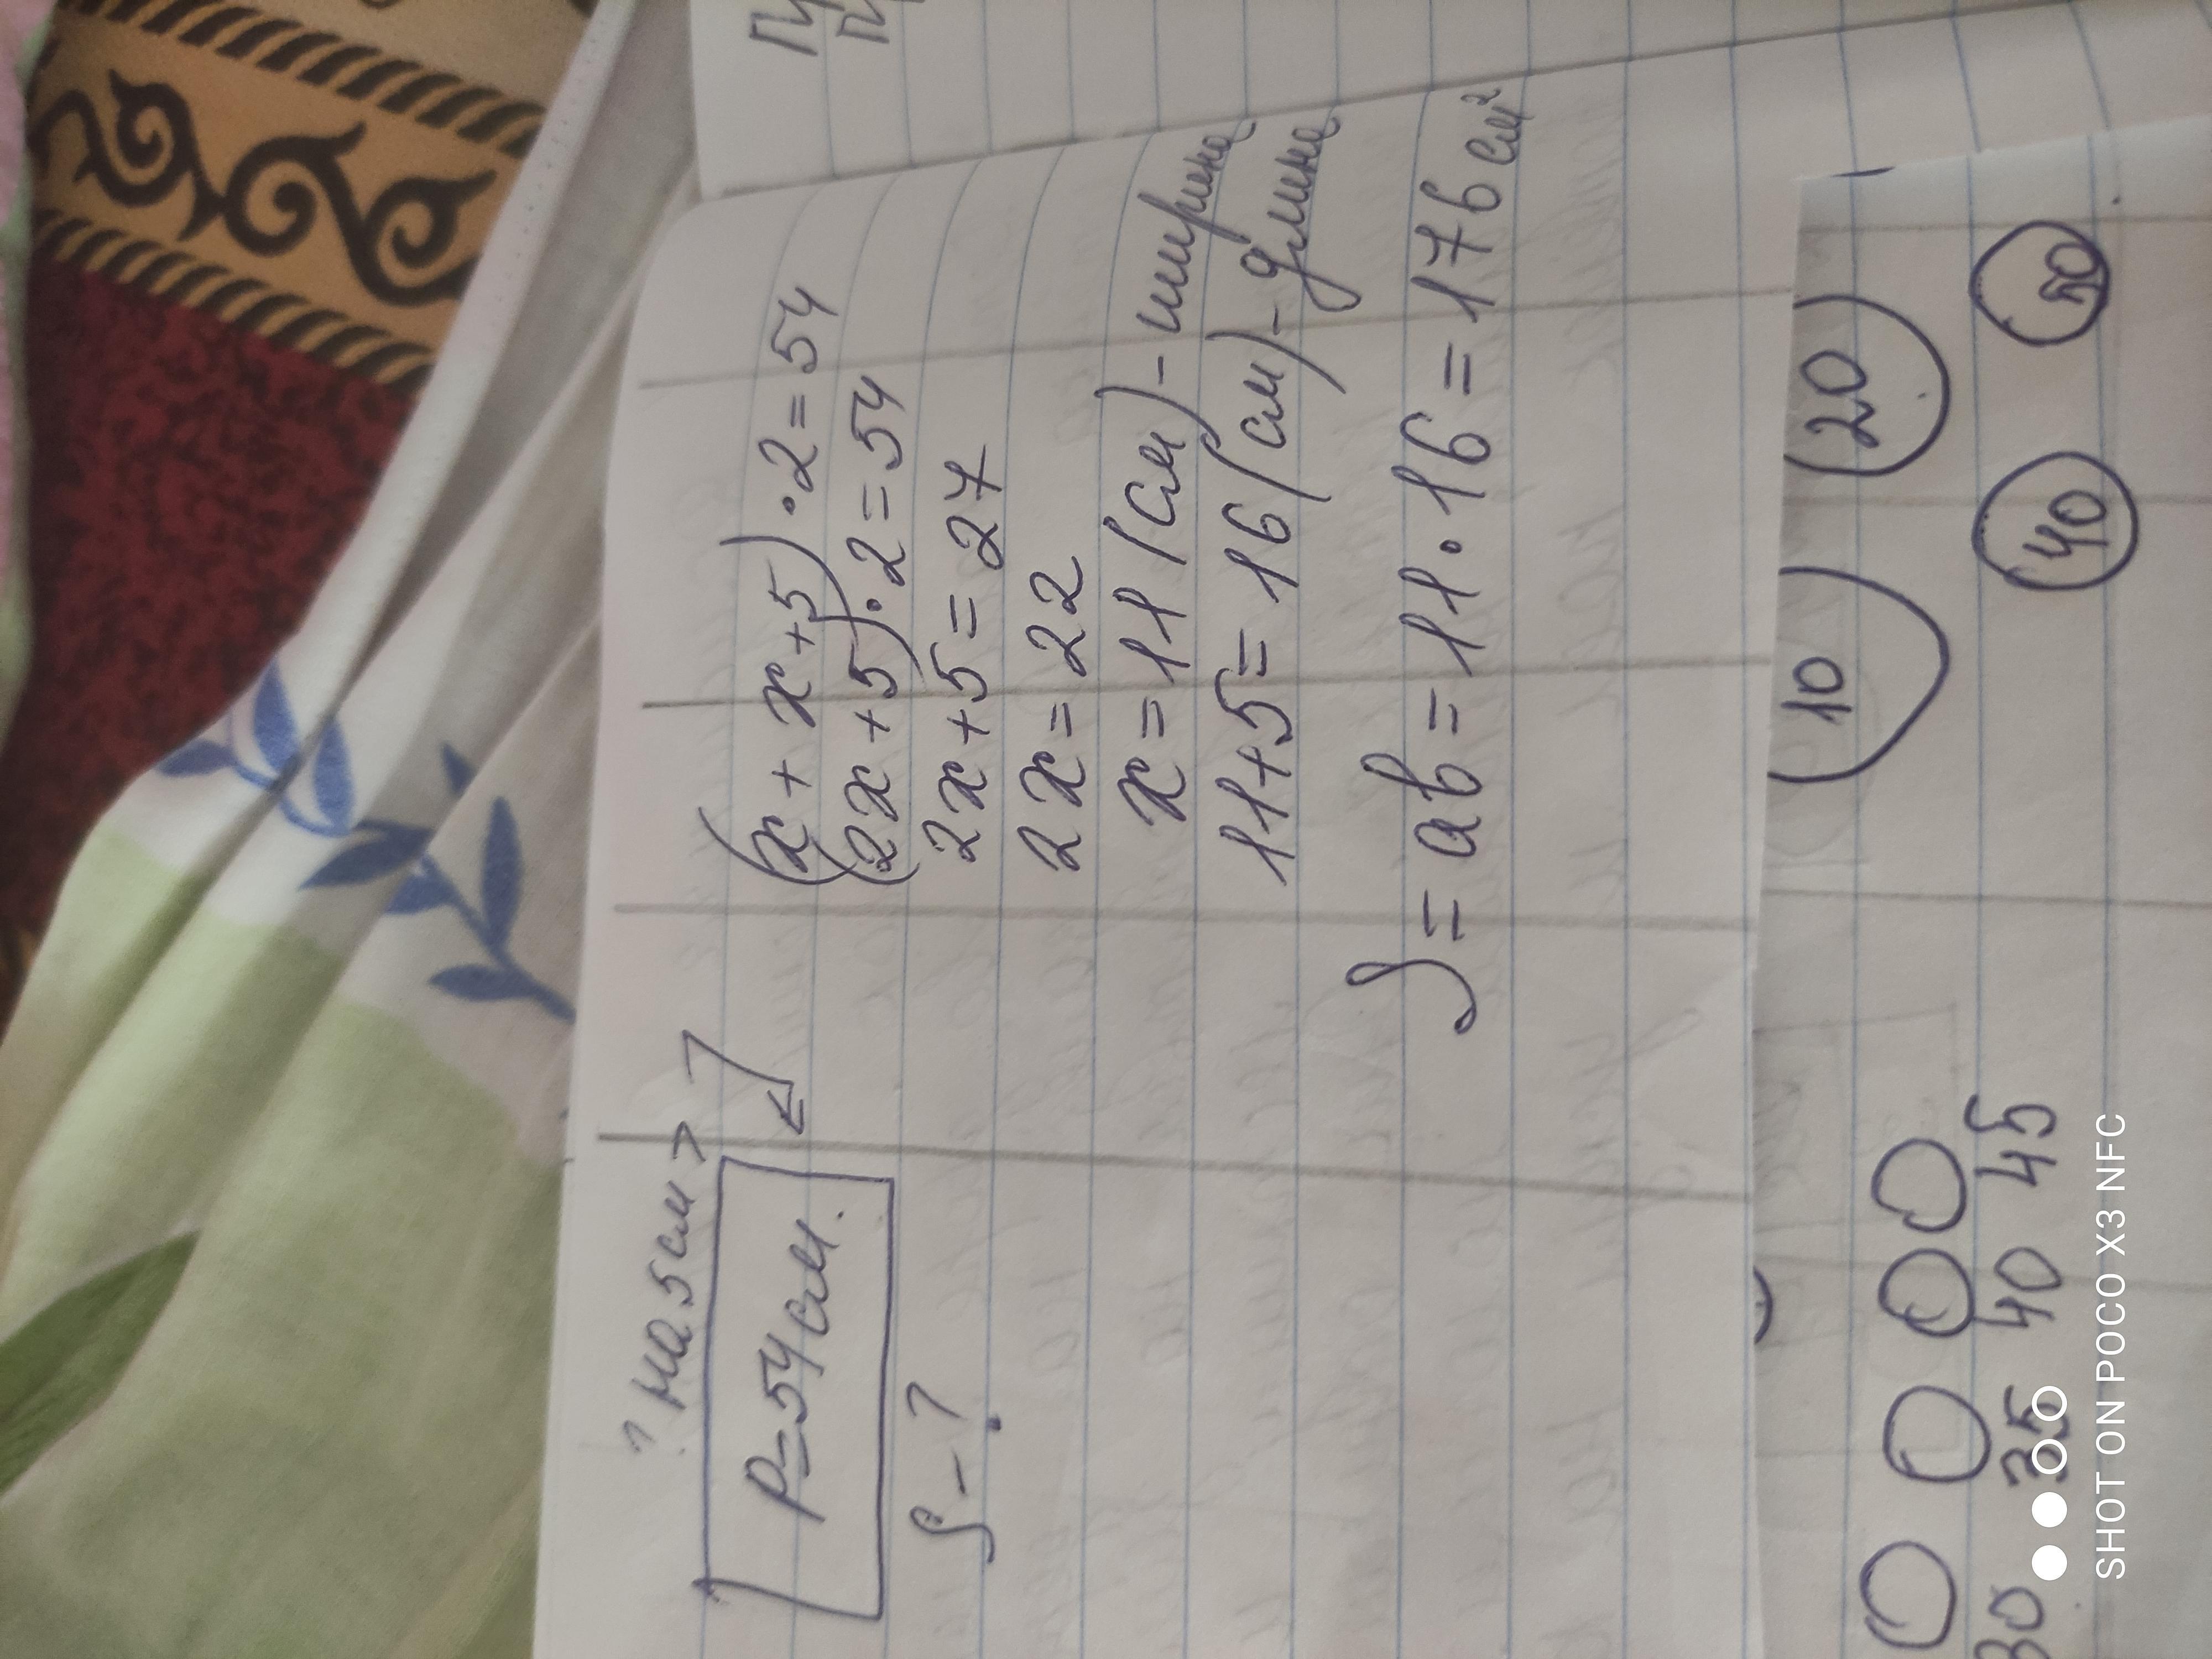 ? на 5 см >
P=54 см.
S - ?
(x + x+5) · 2 = 54
(2x + 5) · 2 = 54
2x + 5 = 27
2x = 22
x = 11 (см) - ширина
11+5 = 16 (см) - длина
S = ab = 11 · 16 = 176 см²
10 20
40 50
30 35 40 45
SHOT ON POCO X3 NFC